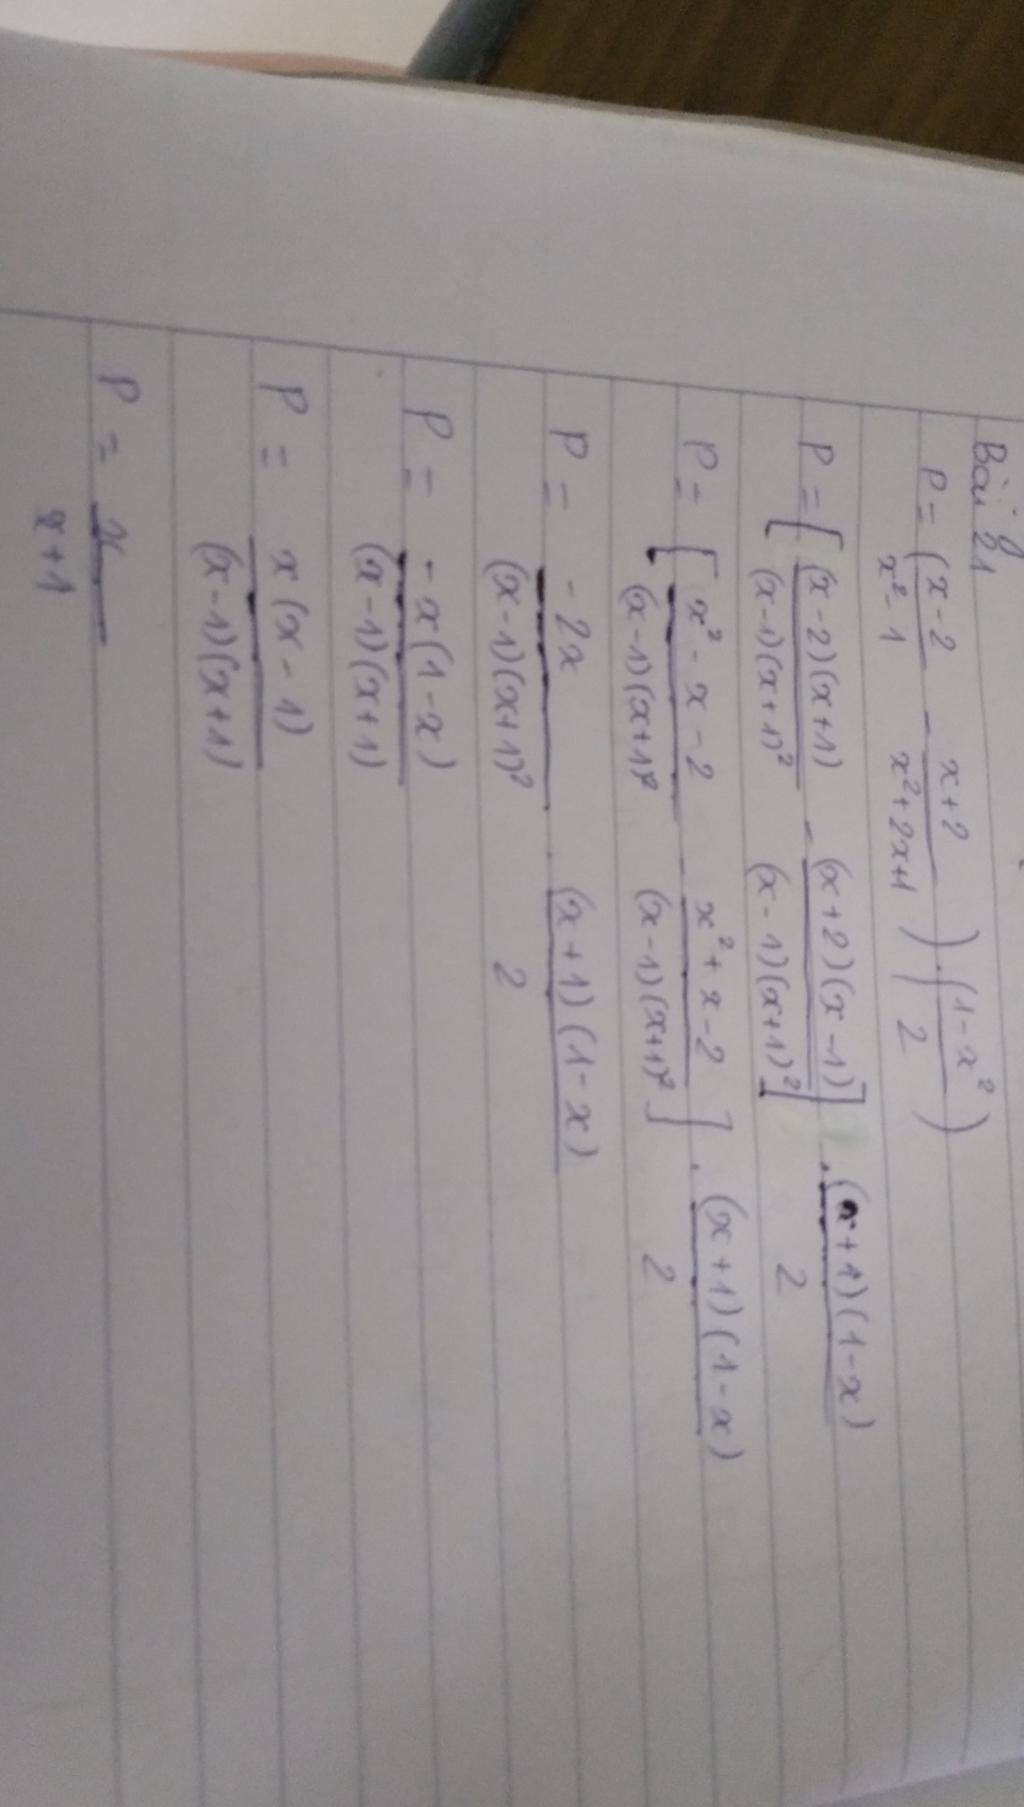 Bài 21
P = (x-2/x²-1 - x+2/x²+2x+1) . (1-x²/2)
P = [(x-2)(x+1)/(x-1)(x+1)² - (x+2)(x-1)/(x-1)(x+1)²] . (x+1)(1-x)/2
P = [x²-x-2/(x-1)(x+1)² - x²+x-2/(x-1)(x+1)²] . (x+1)(1-x)/2
P = -2x/(x-1)(x+1)² . (x+1)(1-x)/2
P = -x(1-x)/(x-1)(x+1)
P = x(x-1)/(x-1)(x+1)
P = x/x+1